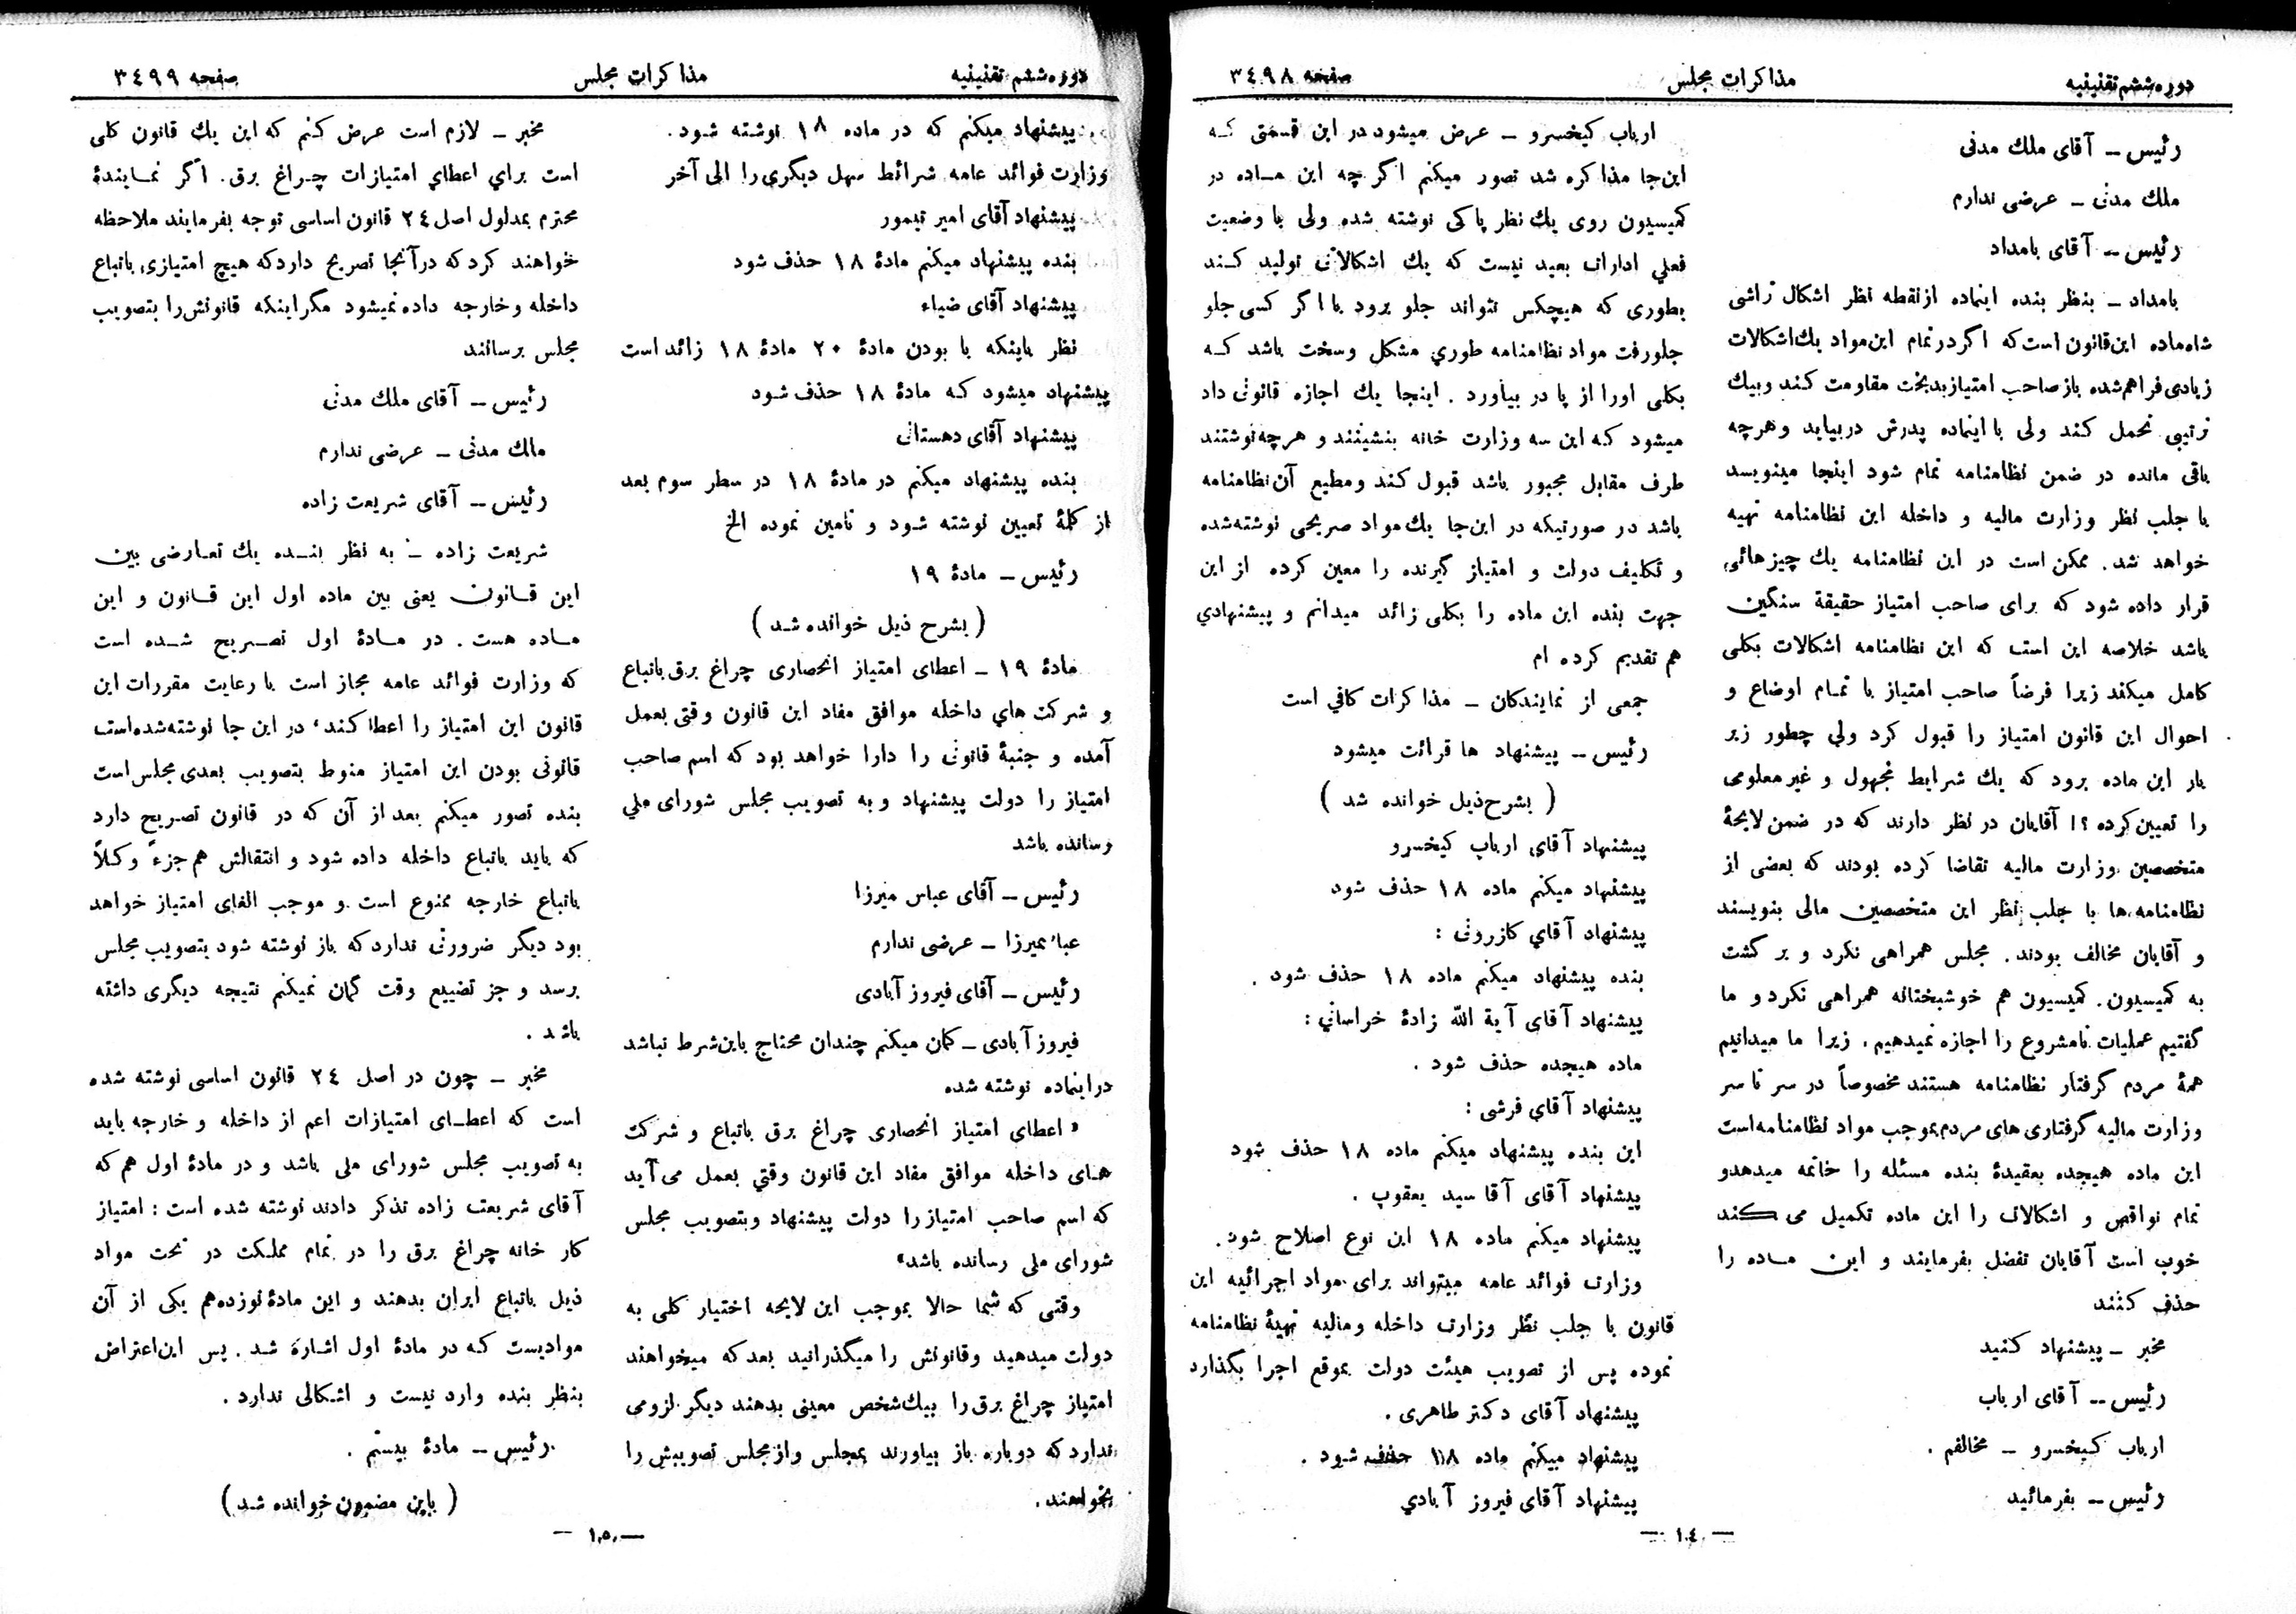 دوره ششم تقنینیه
مذاکرات مجلس
صفحه ۳٤۹۸
رئیس ـ آقای ملك مدنی
ملك مدنی ـ عرضی ندارم
رئیس ـ آقای بامداد
بامداد ـ بنظر بنده اینماده ازنقطه نظر اشکال تراشی
شاه‌ماده این‌قانون است‌که اگردرتمام این‌مواد یك‌اشکالات
زیادی‌فراهم‌شده بازصاحب امتیازبدبخت مقاومت کند وبیك
ترتیبی تحمل کند ولی با اینماده پدرش دربیاید وهرچه
باقی مانده در ضمن نظامنامه تمام شود اینجا مینویسد
با جلب نظر وزارت مالیه و داخله این نظامنامه تهیه
خواهد شد. ممکن است در این نظامنامه یك چیزهائی
قرار داده شود که برای صاحب امتیاز حقیقة سنگین
باشد خلاصه این است که این نظامنامه اشکالات بکلی
کامل میکند زیرا فرضاً صاحب امتیاز با تمام اوضاع و
احوال این قانون امتیاز را قبول کرد ولی چطور زیر
بار این ماده برود که یك شرایط مجهول و غیرمعلومی
را تعیین‌کرده ؟! آقایان در نظر دارند که در ضمن لایحهٔ
متخصصین وزارت مالیه تقاضا کرده بودند که بعضی از
نظامنامه ها با جلب نظر این متخصصین مالی بنویسند
و آقایان مخالف بودند. مجلس همراهی نکرد و بر گشت
به کمیسیون. کمیسیون هم خوشبختانه همراهی نکرد و ما
گفتیم عملیات نامشروع را اجازه نمیدهیم. زیرا ما میدانیم
همهٔ مردم گرفتار نظامنامه هستند مخصوصاً در سر تا سر
وزارت مالیه گرفتاری های مردم‌بموجب مواد نظامنامه‌است
این ماده هیجده بعقیدهٔ بنده مسئله را خاتمه میدهدو
تمام نواقص و اشکالات را این ماده تکمیل می کند
خوب است آقایان تفضل بفرمایند و این ماده را
حذف کنند
مخبر ـ پیشنهاد کنید
رئیس ـ آقای ارباب
ارباب کیخسرو ـ مخالفم .
رئیس ـ بفرمائید
ارباب کیخسرو ـ عرض میشود در این قسمتی که
این‌جا مذاکره شد تصور میکنم اگر چه این ماده در
کمیسیون روی یك نظر پاکی نوشته شده ولی با وضعیت
فعلی ادارات بعید نیست که یك اشکالاتی تولید کند
بطوری که هیچکس نتواند جلو برود یا اگر کسی جلو
جلورفت مواد نظامنامه طوري مشکل وسخت باشد که
بکلی اورا از پا در بیاورد . اینجا یك اجازه قانونی داد
میشود که این سه وزارت خانه بنشینند و هرچه‌نوشتند
طرف مقابل مجبور باشد قبول کند ومطیع آن‌نظامنامه
باشد در صورتیکه در این‌جا یك‌مواد صریحی نوشته‌شده
و تکلیف دولت و امتیاز گیرنده را معین کرده از این
جهت بنده این ماده را بکلی زائد میدانم و پیشنهادي
هم تقدیم کرده ام
جمعی از نمایندگان ـ مذاکرات کافي است
رئیس ـ پیشنهاد ها قرائت میشود
( بشرح‌ذیل خوانده شد )
پیشنهاد آقای ارباب کیخسرو
پیشنهاد میکنم ماده ۱۸ حذف شود
پیشنهاد آقاي کازرونی :
بنده پیشنهاد میکنم ماده ۱۸ حذف شود .
پیشنهاد آقای آیة الله زادهٔ خراسانی :
ماده هیجده حذف شود .
پیشنهاد آقاي فرشی :
این بنده پیشنهاد میکنم ماده ۱۸ حذف شود
پیشنهاد آقای آقا سید یعقوب .
پیشنهاد میکنم ماده ۱۸ این نوع اصلاح شود.
وزارت فوائد عامه میتواند برای مواد اجرائیه این
قانون با جلب نظر وزارت داخله ومالیه تهیهٔ نظامنامه
نموده پس از تصویب هیئت دولت بموقع اجرا بگذارد
پیشنهاد آقای دکتر طاهری .
پیشنهاد میکنم ماده ۱۸ حذف شود .
پیشنهاد آقای فیروز آبادي
— ۱۰٤ —
دوره ششم تقنینیه
مذاکرات مجلس
صفحه ۳٤۹۹
پیشنهاد میکنم که در ماده ۱۸ نوشته شود.
وزارت فوائد عامه شرائط سهل دیگری را الی آخر
پیشنهاد آقای امیر تیمور
بنده پیشنهاد میکنم مادهٔ ۱۸ حذف شود
پیشنهاد آقای ضیاء
نظر باینکه با بودن مادهٔ ۲۰ مادهٔ ۱۸ زائد است
پیشنهاد میشود که مادهٔ ۱۸ حذف شود
پیشنهاد آقای دهستانی
بنده پیشنهاد میکنم در مادهٔ ۱۸ در سطر سوم بعد
از کلمهٔ تعیین نوشته شود و تامین نموده الخ
رئیس ـ مادهٔ ۱۹
( بشرح ذیل خوانده شد )
مادهٔ ۱۹ ـ اعطای امتیاز انحصاری چراغ برق باتباع
و شرکت هاي داخله موافق مفاد این قانون وقتی بعمل
آمده و جنبهٔ قانونی را دارا خواهد بود که اسم صاحب
امتیاز را دولت پیشنهاد و به تصویب مجلس شورای ملي
رسانده باشد
رئیس ـ آقای عباس میرزا
عباسمیرزا ـ عرضی ندارم
رئیس ـ آقای فیروز آبادی
فیروز آبادی ـ گمان میکنم چندان محتاج باین‌شرط نباشد
دراینماده نوشته شده
« اعطای امتیاز انحصاری چراغ برق باتباع و شرکت
های داخله موافق مفاد این قانون وقتي بعمل می آید
که اسم صاحب امتیازرا دولت پیشنهاد وبتصویب مجلس
شورای ملی رسانده باشد»
وقتی که شما حالا بموجب این لایحه اختیار کلی به
دولت میدهید وقانونش را میگذرانید بعدکه میخواهند
امتیاز چراغ برق را بیك‌شخص معینی بدهند دیگر لزومی
ندارد که دوباره باز بیاورند بمجلس وازمجلس تصویبش را
بخواهند.
مخبر ـ لازم است عرض کنم که این یك قانون کلی
است براي اعطاي امتیازات چراغ برق. اگر نمایندهٔ
محترم بمدلول اصل ۲٤ قانون اساسی توجه بفرمایند ملاحظه
خواهند کرد که درآنجا تصریح داردکه هیچ امتیازی باتباع
داخله وخارجه داده نمیشود مگراینکه قانونش‌را بتصویب
مجلس برسانند
رئیس ـ آقای ملك مدنی
مالك مدنی ـ عرضی ندارم
رئیس ـ آقای شریعت زاده
شریعت زاده ـ به نظر بنده یك تعارضی بین
این قانون یعنی بین ماده اول این قانون و این
ماده هست. در مادهٔ اول تصریح شده است
که وزارت فوائد عامه مجاز است با رعایت مقررات این
قانون این امتیاز را اعطا کند، در این جا نوشته‌شده‌است
قانونی بودن این امتیاز منوط بتصویب بعدی مجلس‌است
بنده تصور میکنم بعد از آن که در قانون تصریح دارد
که باید باتباع داخله داده شود و انتقالش هم جزءً وکلاً
باتباع خارجه ممنوع است و موجب الغای امتیاز خواهد
بود دیگر ضرورتی نداردکه باز نوشته شود بتصویب مجلس
برسد و جز تضییع وقت گمان نمیکنم نتیجه دیگری داشته
باشد .
مخبر ـ چون در اصل ۲٤ قانون اساسی نوشته شده
است که اعطای امتیازات اعم از داخله و خارجه باید
به تصویب مجلس شورای ملی باشد و در مادهٔ اول هم که
آقای شریعت زاده تذکر دادند نوشته شده است : امتیاز
کار خانه چراغ برق را در تمام مملکت در تحت مواد
ذیل باتباع ایران بدهند و این مادهٔ نوزدهم یکی از آن
موادیست که در مادهٔ اول اشاره شد. پس این‌اعتراض
بنظر بنده وارد نیست و اشکالی ندارد.
رئیس ـ مادهٔ بیستم .
( باین مضمون خوانده شد )
— ۱۰۵ —